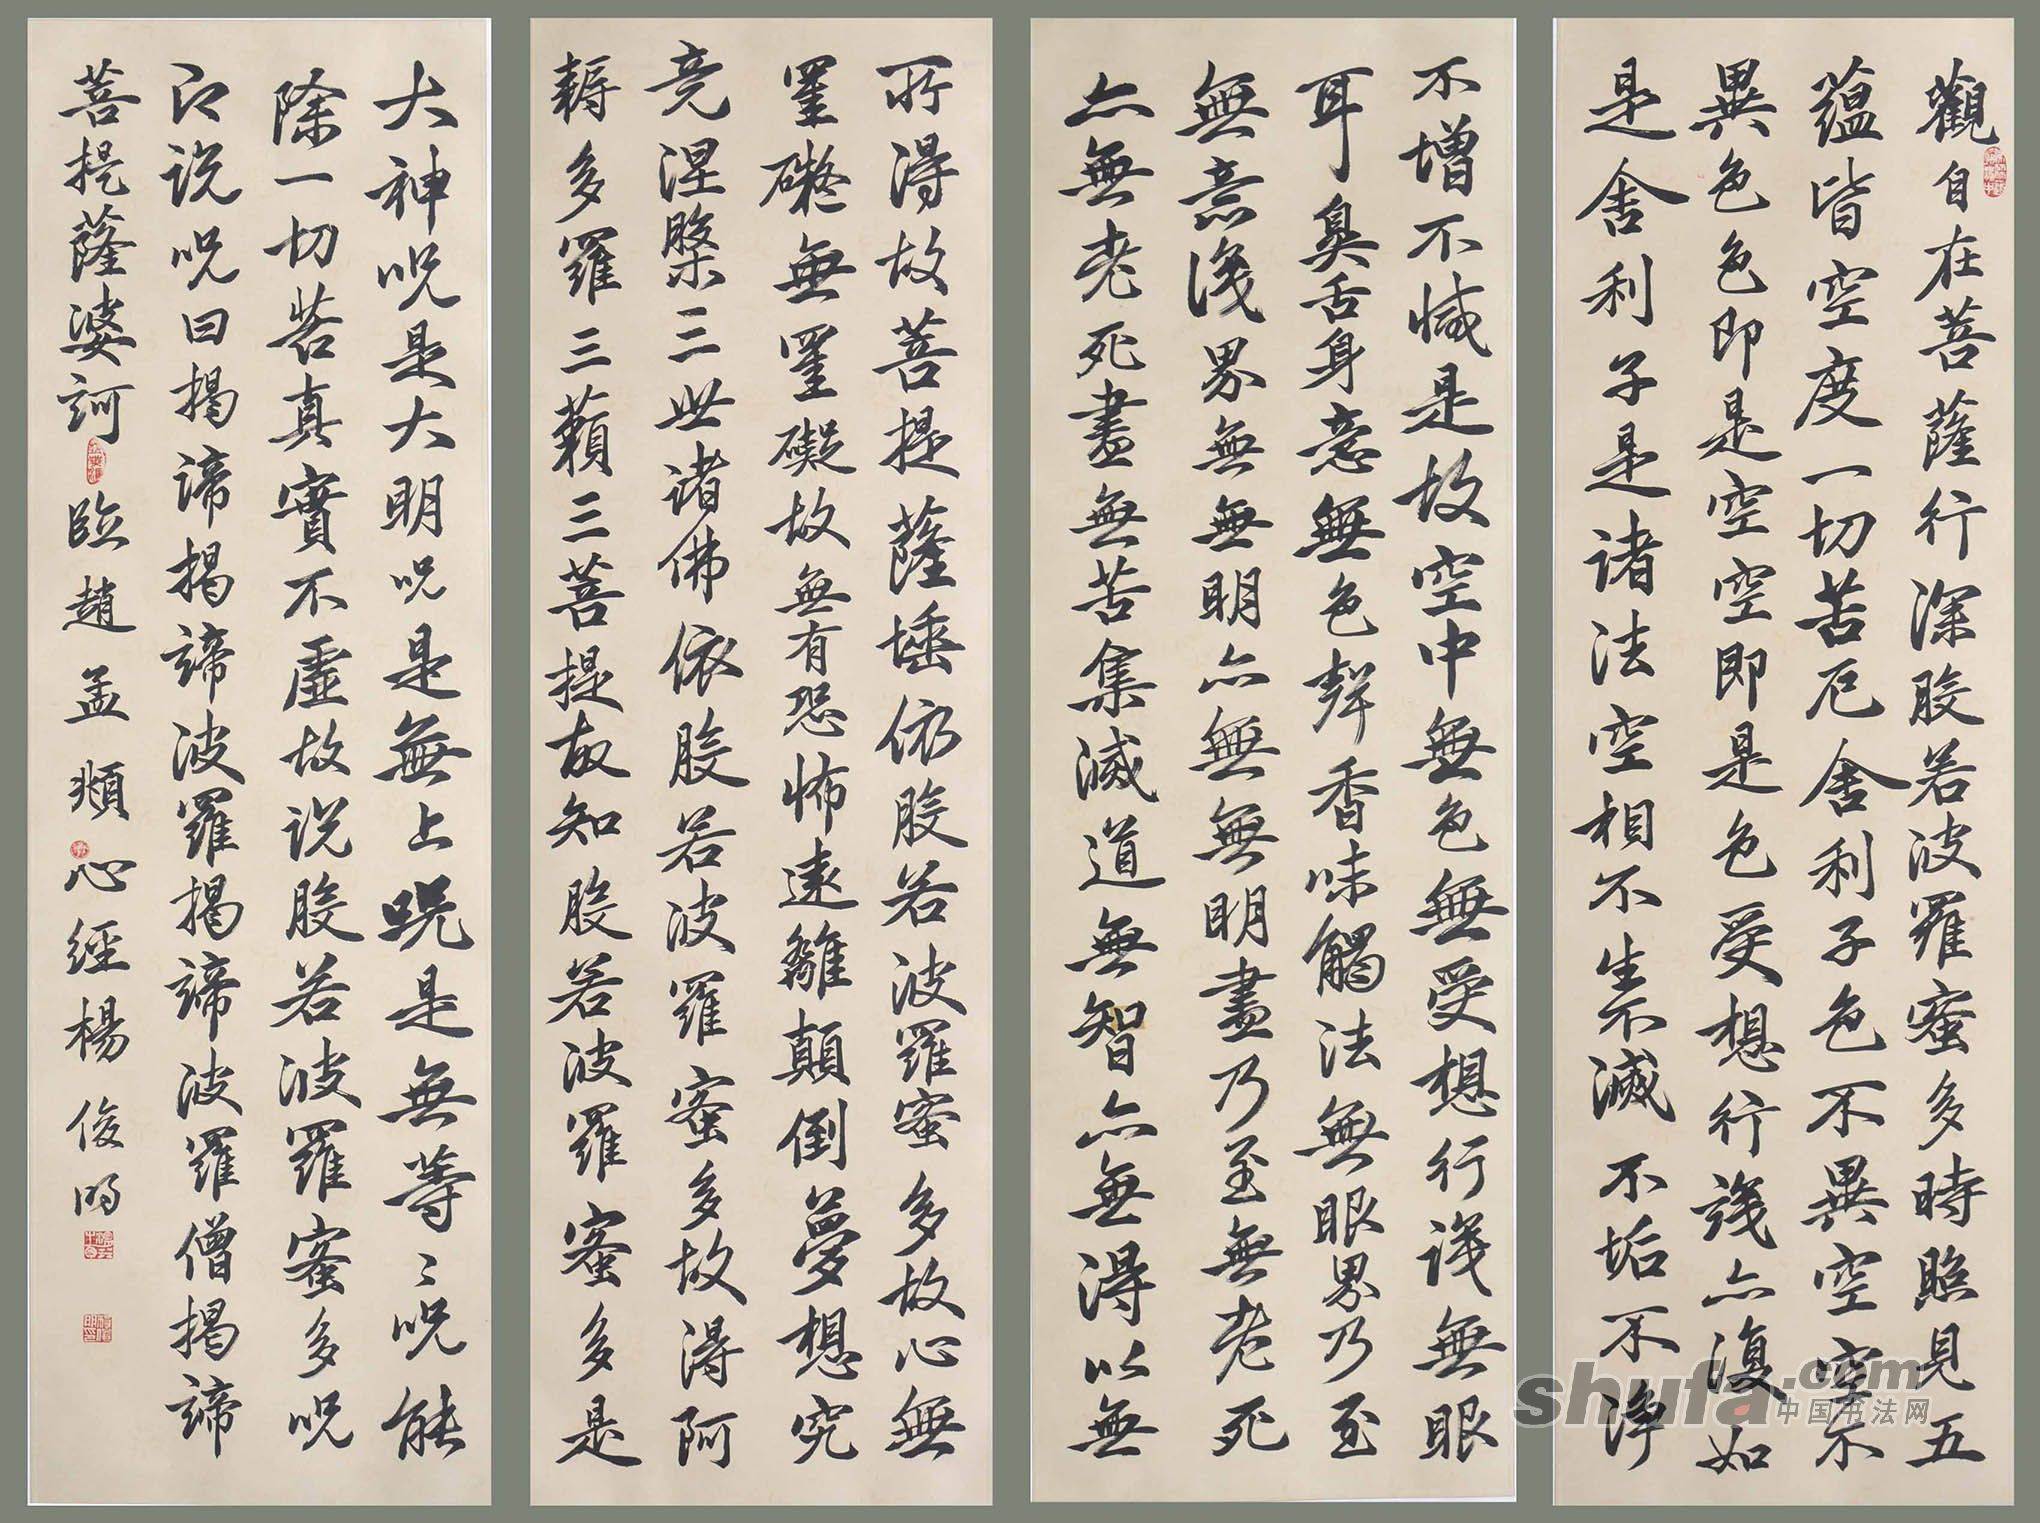 觀自在菩薩行深般若波羅蜜多時照見五
蘊皆空度一切苦厄舍利子色不異空空不
異色色即是空空即是色受想行識亦復如
是舍利子是諸法空相不生不滅不垢不淨
不增不減是故空中無色無受想行識無眼
耳鼻舌身意無色聲香味觸法無眼界乃至
無意識界無無明亦無無明盡乃至無老死
亦無老死盡無苦集滅道無智亦無得以無
所得故菩提薩埵依般若波羅蜜多故心無
罣礙無罣礙故無有恐怖遠離顛倒夢想究
竟涅槃三世諸佛依般若波羅蜜多故得阿
耨多羅三藐三菩提故知般若波羅蜜多是
大神咒是大明咒是無上咒是無等〻咒能
除一切苦真實不虛故說般若波羅蜜多咒
即說咒曰揭諦揭諦波羅揭諦波羅僧揭諦
菩提薩婆訶 臨趙孟頫心經楊俊明
shufa.com
中国书法网